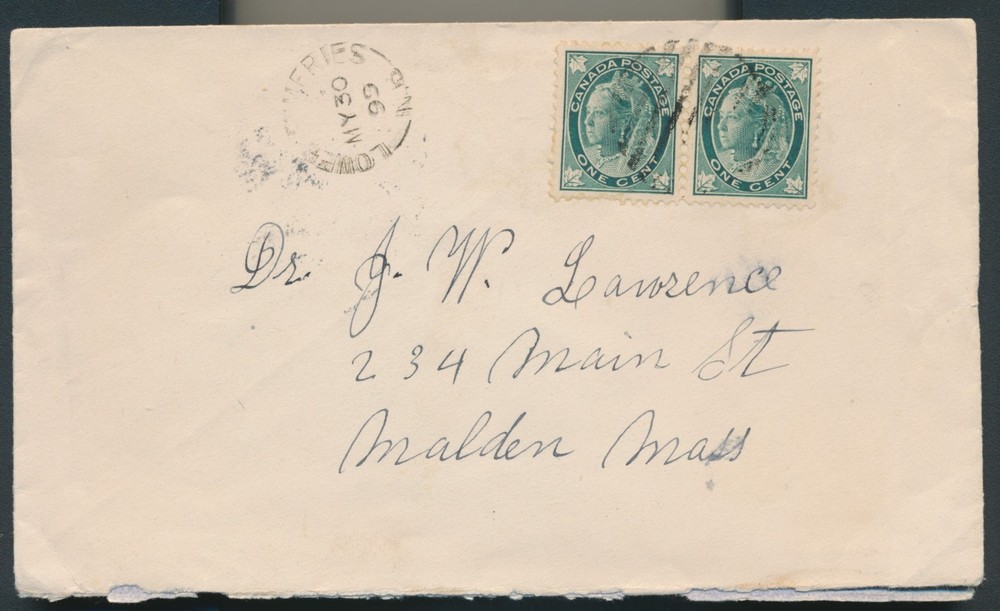 LOWER JEMERIES N.B.
MY 30
99
CANADA POSTAGE
ONE CENT
CANADA POSTAGE
ONE CENT
Dr. J. W. Lawrence
234 Main St
Malden Mass